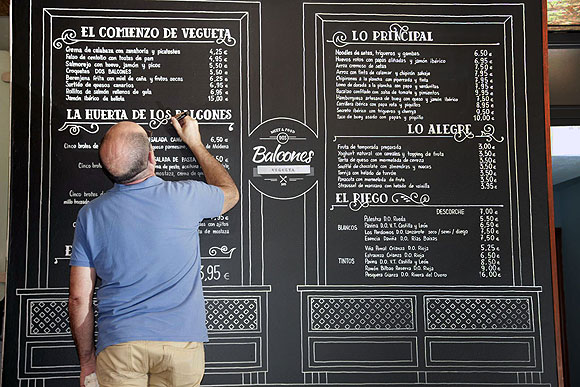 EL COMIENZO DE VEGUETA
Crema de calabaza con zanahoria y picatostes 4,25 €
Falso de centollo con tostas de pan 4,95 €
Salmorejo con huevo, jamón y picos 5,50 €
Croquetas DOS BALCONES 5,50 €
Berenjena frita con miel de caña y frutos secos 6,25 €
Surtido de quesos canarios 6,95 €
Rollitos de salmón rellenos de gula 6,95 €
Jamón ibérico de bellota 15,00 €
LA HUERTA DE LOS BALCONES
SALADA CAMPERA 6,50 €
Cinco brotes
SALADA DE PASTA
Cinco brotes
Cinco brotes
3,95 €
MEET & FOOD
DOS
Balcones
VEGUETA
LO PRINCIPAL
Noodles de setas, trigueros y gambas 6,50 €
Huevos rotos con papas aliñadas y jamón ibérico 6,95 €
Arroz cremoso de setas 7,50 €
Arroz con tinta de calamar y chipirón salvaje 7,95 €
Chipirones a la plancha con parmentier y tinta 7,95 €
Lomo de dorada a la plancha con papa y verduritas 7,95 €
Bacalao confitado con salsa de tomate y pimientos 7,95 €
Hamburguesa artesana de buey con queso y jamón ibérico 7,50 €
Carrillera ibérica con papa rota y piquillos 8,95 €
Secreto ibérico con trigueros y cherry 9,95 €
Taco de buey asado con papas y mojitos 10,95 €
LO ALEGRE
Fruta de temporada preparada 3,00 €
Joghurt natural con mermelada y topping de fruta 3,50 €
Tarta de queso con mermelada de cereza 3,50 €
Soufflé de chocolate con almendras y nueces 3,50 €
Torrija con helado de turrón 3,50 €
Panacota con mermelada de fresa 3,50 €
Strassuel de manzana con helado de vainilla 3,95 €
EL RIEGO
DESCORCHE 7,00 €
BLANCOS
Palestra D.O. Rueda 5,50 €
Pavina D.O. V.T. Castilla y León 6,50 €
Los Perdomos D.O. Lanzarote seco / semi / diego 7,50 €
Esencia Diviña D.O. Rías Baixas 7,50 €
TINTOS
Viña Ponal Crianza D.O. Rioja 5,25 €
Estraunza Crianza D.O. Rioja 6,50 €
Pavina D.O. V.T. Castilla y León 8,50 €
Ramón Bilbao Reserva D.O. Rioja 9,00 €
Pesquera Crianza D.O. Rivera del Duero 16,00 €